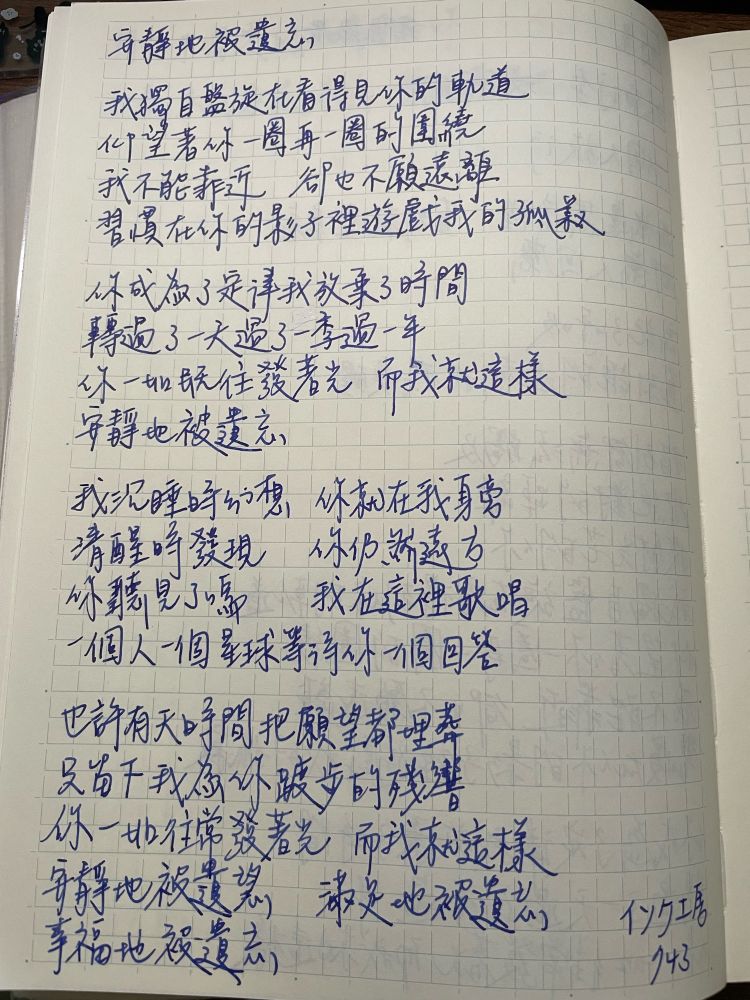 安靜地被遺忘
我獨自盤旋在看得見你的軌道
仰望著你一圈再一圈的圍繞
我不能靠近 卻也不願遠離
習慣在你的影子裡遊戲我的孤寂
你成為了定律我放棄了時間
轉過了一天過了一季過一年
你一如既往發著光 而我就這樣
安靜地被遺忘
我沉睡時幻想 你就在我身旁
清醒時發現 你仍然遠方
你聽見了嗎 我在這裡歌唱
一個人一個星球等待你一個回答
也許有天時間把願望都埋葬
只留下我為你踱步的殘響
你一如往常發著光 而我就這樣
安靜地被遺忘 滿足地被遺忘
幸福地被遺忘
インク工房
943